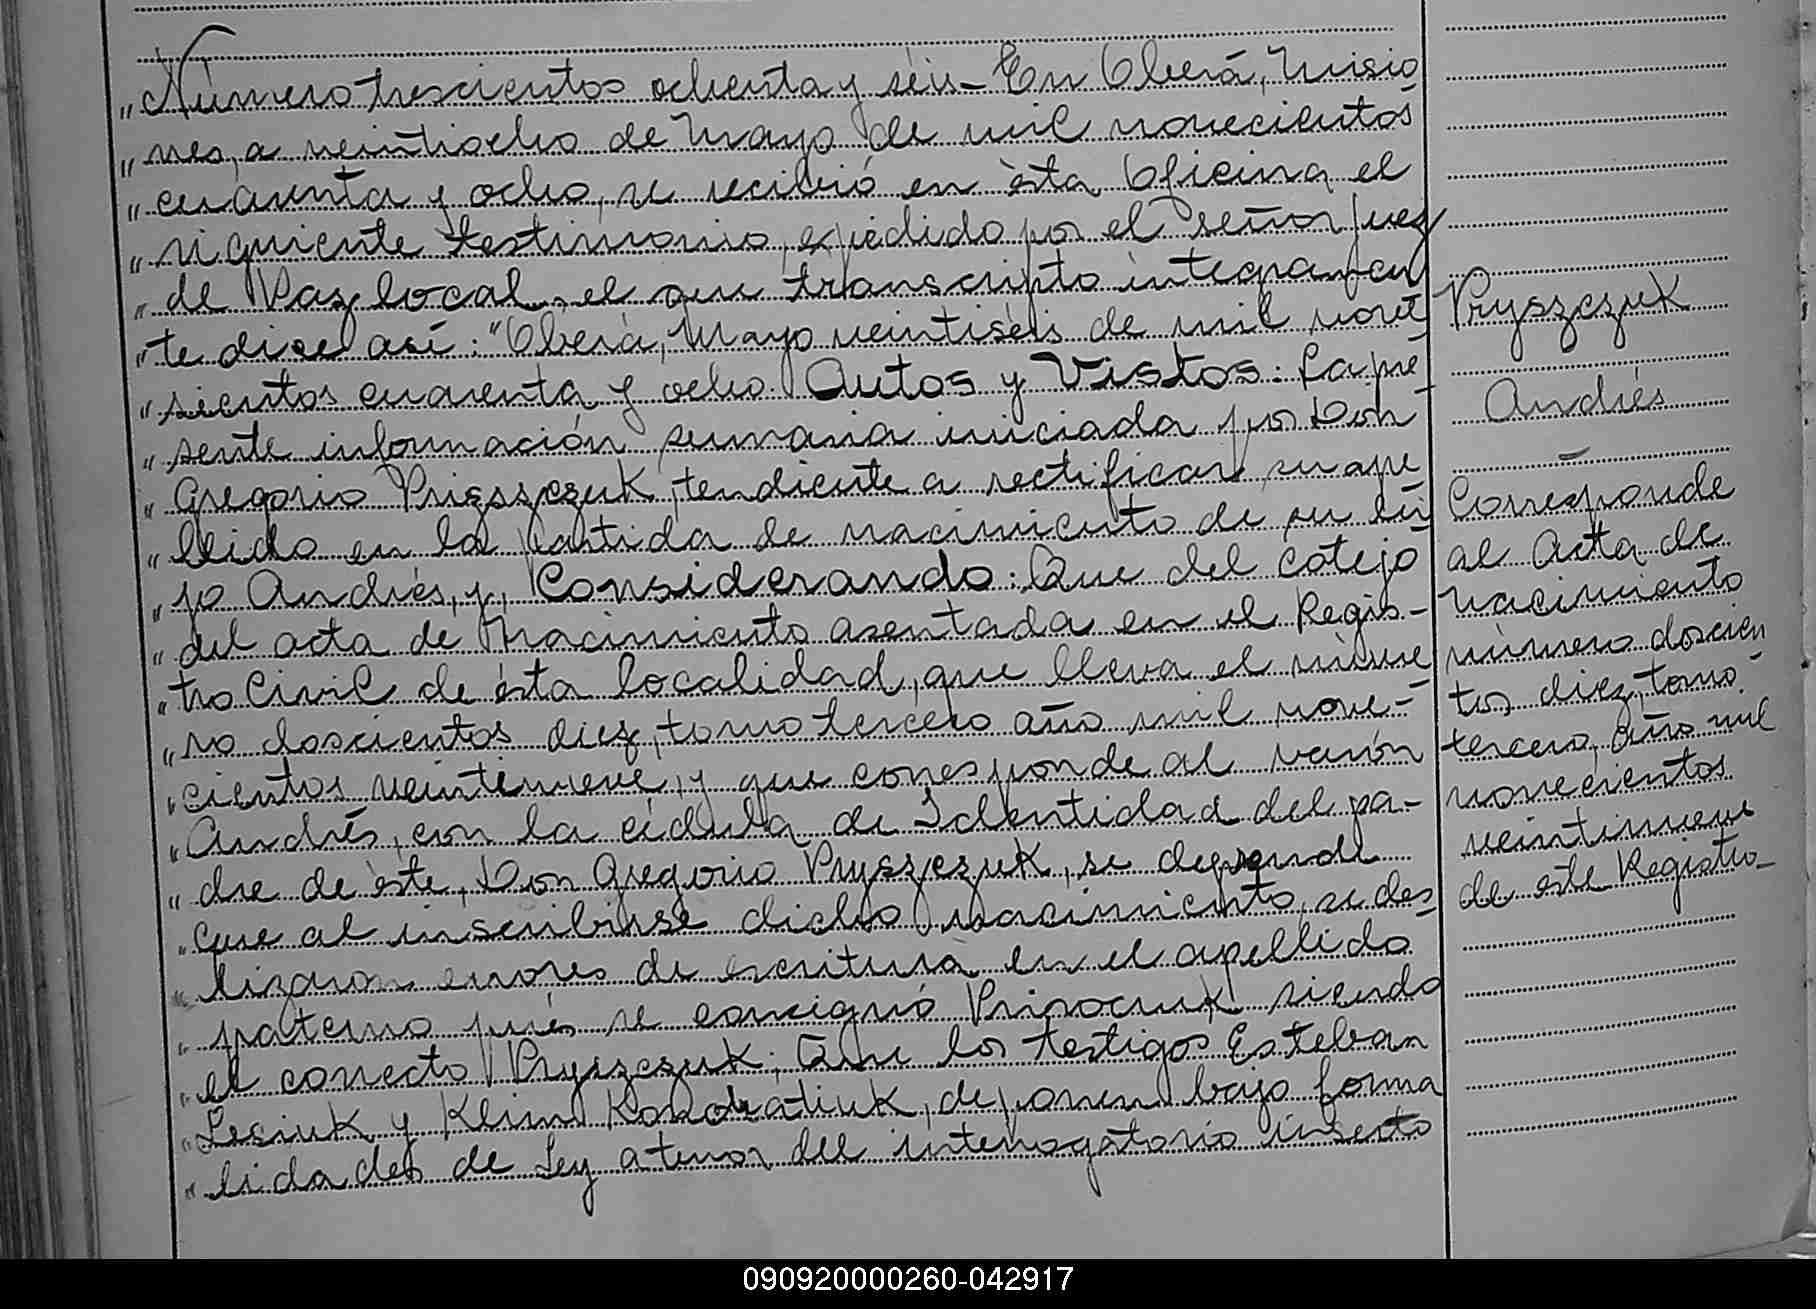 „ Número trescientos ochenta y séis – En Oberá, Misio
„ nes, a veintiocho de Mayo de mil novecientos
„ cuarenta y ocho, se recibió en ésta Oficina el
„ siguiente testimonio, expedido por el señor Juez
„ de Paz local, el que transcripto integramen
„ te dice así: "Oberá, Mayo veintiséis de mil nove
„ sientos cuarenta y ocho. Autos y Vistos: La pre
„ sente información sumaria iniciada por Don
„ Gregorio Priszczuk, tendiente a rectificar su ape
„ llido en la partida de nacimiento de su hi
„ jo Andrés, y, Considerando: Que del cotejo
„ del acta de Nacimiento asentada en el Regis-
„ tro Civil de ésta localidad, que lleva el núme
„ ro doscientos diez, tomo tercero año mil nove-
„ cientos veintinueve, y que corresponde al varón
„ Andrés, con la cédula de Identidad del pa-
„ dre de éste, Don Gregorio Pryszczuk, se desprende
„ que al inscribirse dicho nacimiento, se des
„ lizaron errores de escritura en el apellido
„ paterno pués se consignó Prisocruk siendo
„ el correcto Pryszczuk; Que los testigos Esteban
„ Lesiuk y Klim Kondratiuk, deponen bajo forma
„ lidades de Ley a tenor del interrogatorio inserto
Pryszczuk
Andrés
Corresponde
al Acta de
Nacimiento
número doscien
tos diez, tomo
tercero, año mil
novecientos
veintinueve
de este Registro –
090920000260-042917